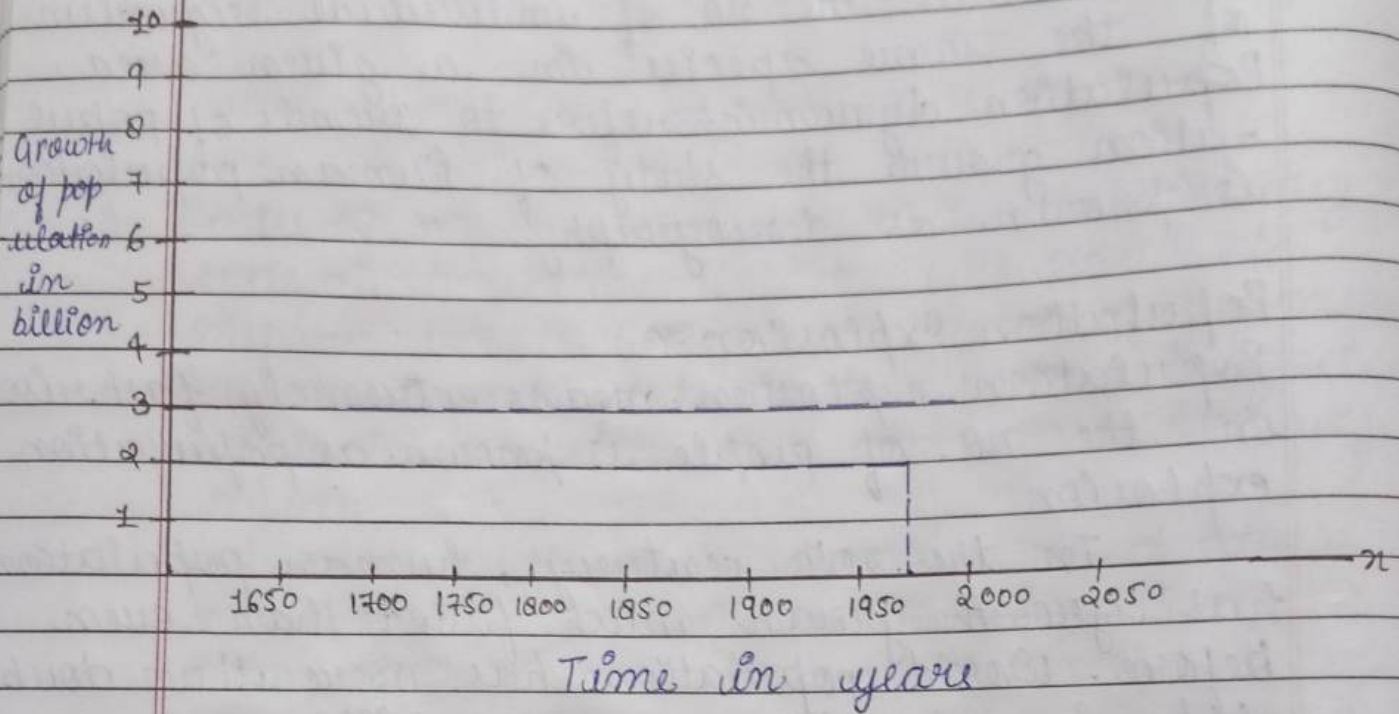 10
9
8
Growth
of pop
7
ulation 6
in
5
billion
4
3
2
1
x
1650 1700 1750 1800 1850 1900 1950 2000 2050
Time in years